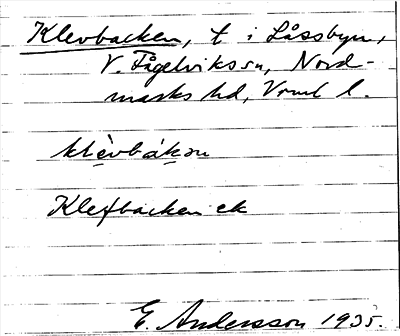 Klevbacken, t i Låssbyn,
V. Fågelviks sn, Nord-
marks hd, Vrml l.
klèvbákən
Klefbacken ek
E. Andersson 1935.